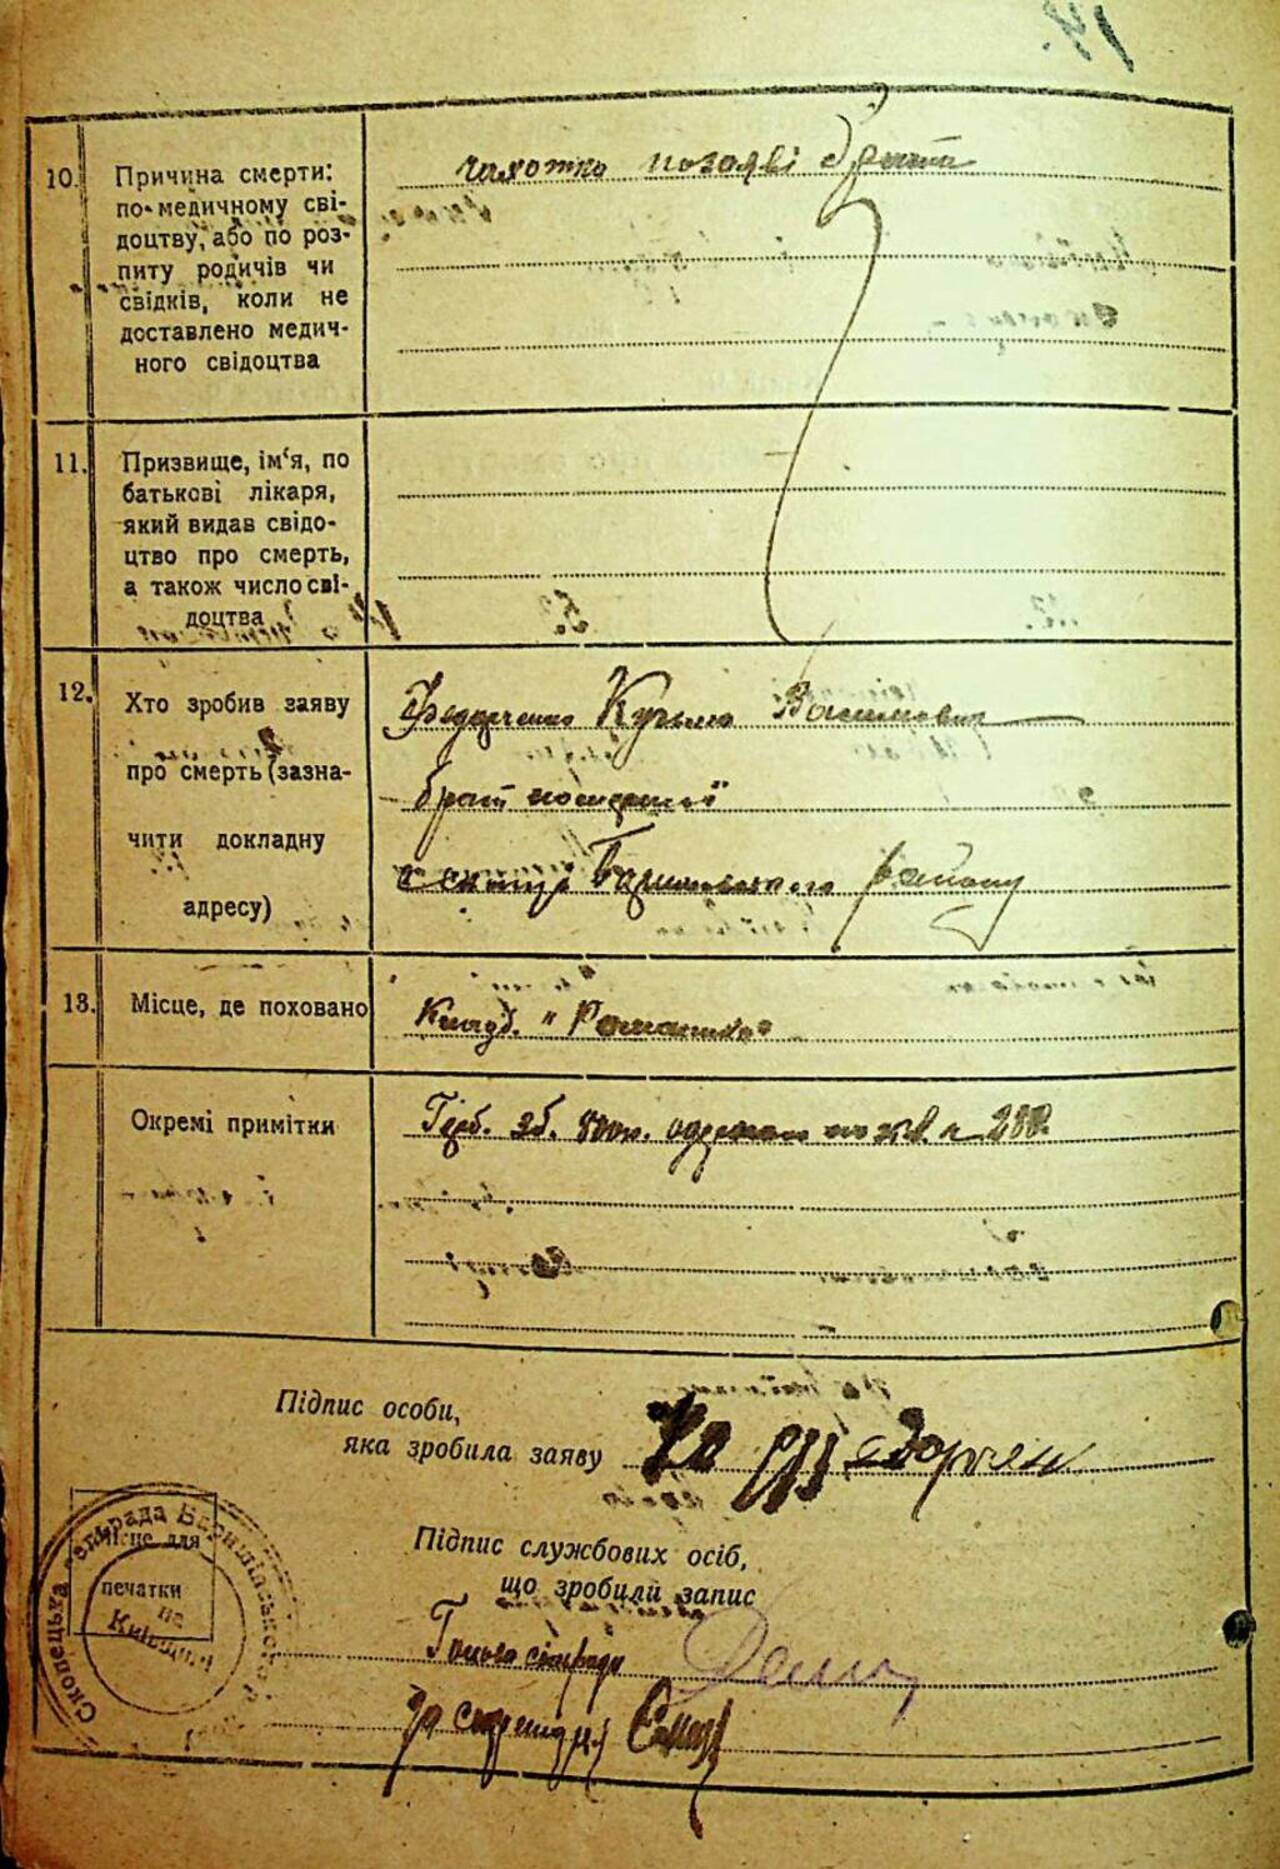 10. Причина смерти:
по медичному сві-
доцтву, або по роз-
питу родичів чи
свідків, коли не
доставлено медич-
ного свідоцтва
чахотка по заяві брата
11. Призвище, ім'я, по
батькові лікаря,
який видав свідо-
цтво про смерть,
а також число сві-
доцтва
12. Хто зробив заяву
про смерть (зазна-
чити докладну
адресу)
Федорченко Кузьма Васильович
брат помершої
району
13. Місце, де поховано
Кладб. "Ромашки"
Окремі примітки
Герб. зб. по кв. 280
Підпис особи,
яка зробила заяву
Підпис службових осіб,
що зробили запис
Місце для
печатки
Голова сільради
За секретаря
Скопецька сільрада Баришівського
на Київщині